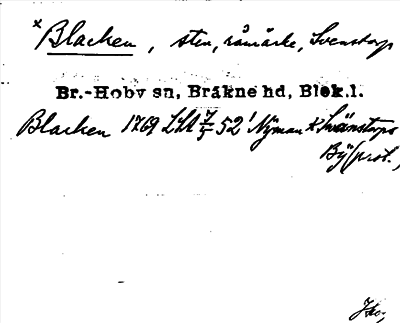 × Blacken, sten, råmärke, Svenstorp
Br.-Hoby sn, Bräkne hd, Blek.l.
Blacken 1769 LSA 7/5 52' Nyman × Svänstorps
By(prot.)